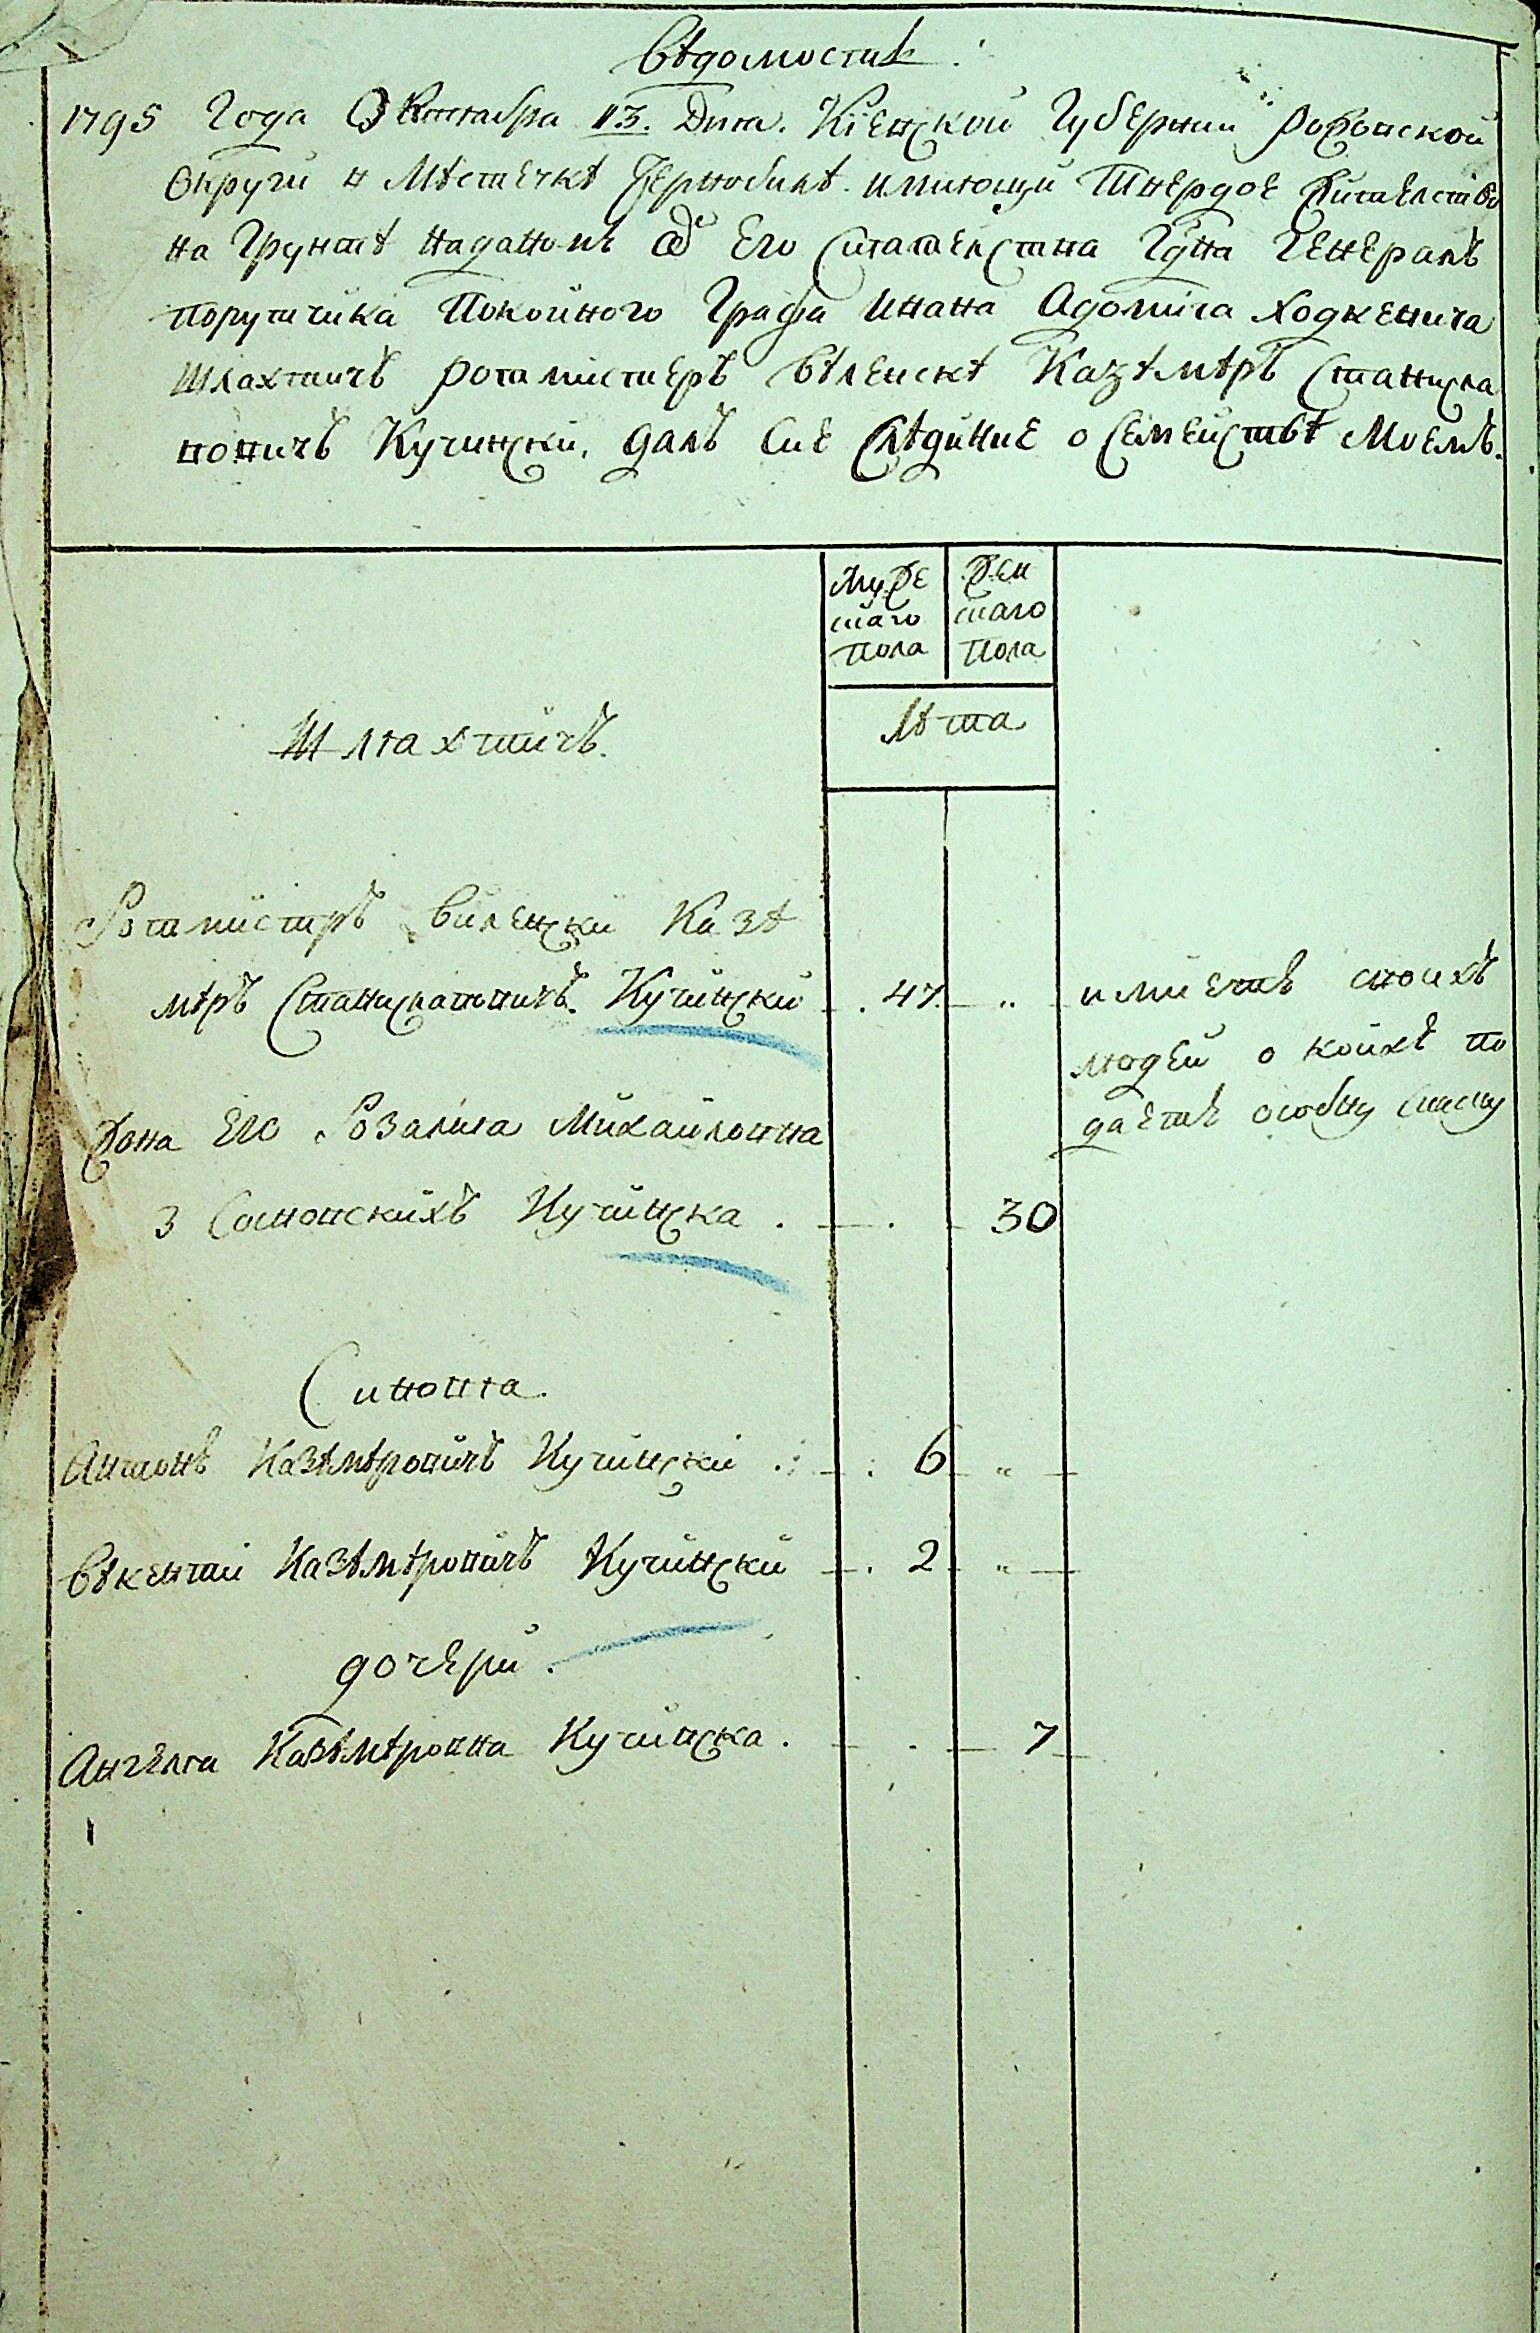 Вѣдомостъ
1795 Года Окттабра 13. Дння. Кіевской Губернии Рожовской
Округи в Мѣстечкѣ Чернобилѣ. имиющи Твердое Жителство
на Грунтѣ наданомъ од Его Сиятелства Гдна Генералъ
порутчика Покойного Графа Ивана Адолиía Ходкевича
Шляхтичъ ротмистеръ вѣленскѣ Казѣмѣръ Станисла
вовичъ Кучински, далъ Сие Свѣдиние о Семействѣ Моемъ.
Муже скаго пола
Жен скаго Пола
Лѣта
Шляхтичъ.
Ротмистръ виленски Казѣ
мѣръ Станиславовичъ. Кучински . 47. „ имиетъ своихъ
людей о коихъ по
Жона Его Розалия Михайловна
даетъ особну
З Сосновскихъ Кучинска . 30
Синовя.
Антонъ Казѣмѣровичъ Кучинскі . 6 „
Вѣкентий Казѣмѣровичъ Кучински . 2 „
дочери.
Ангеля Казѣмѣровна Кучинска . 7